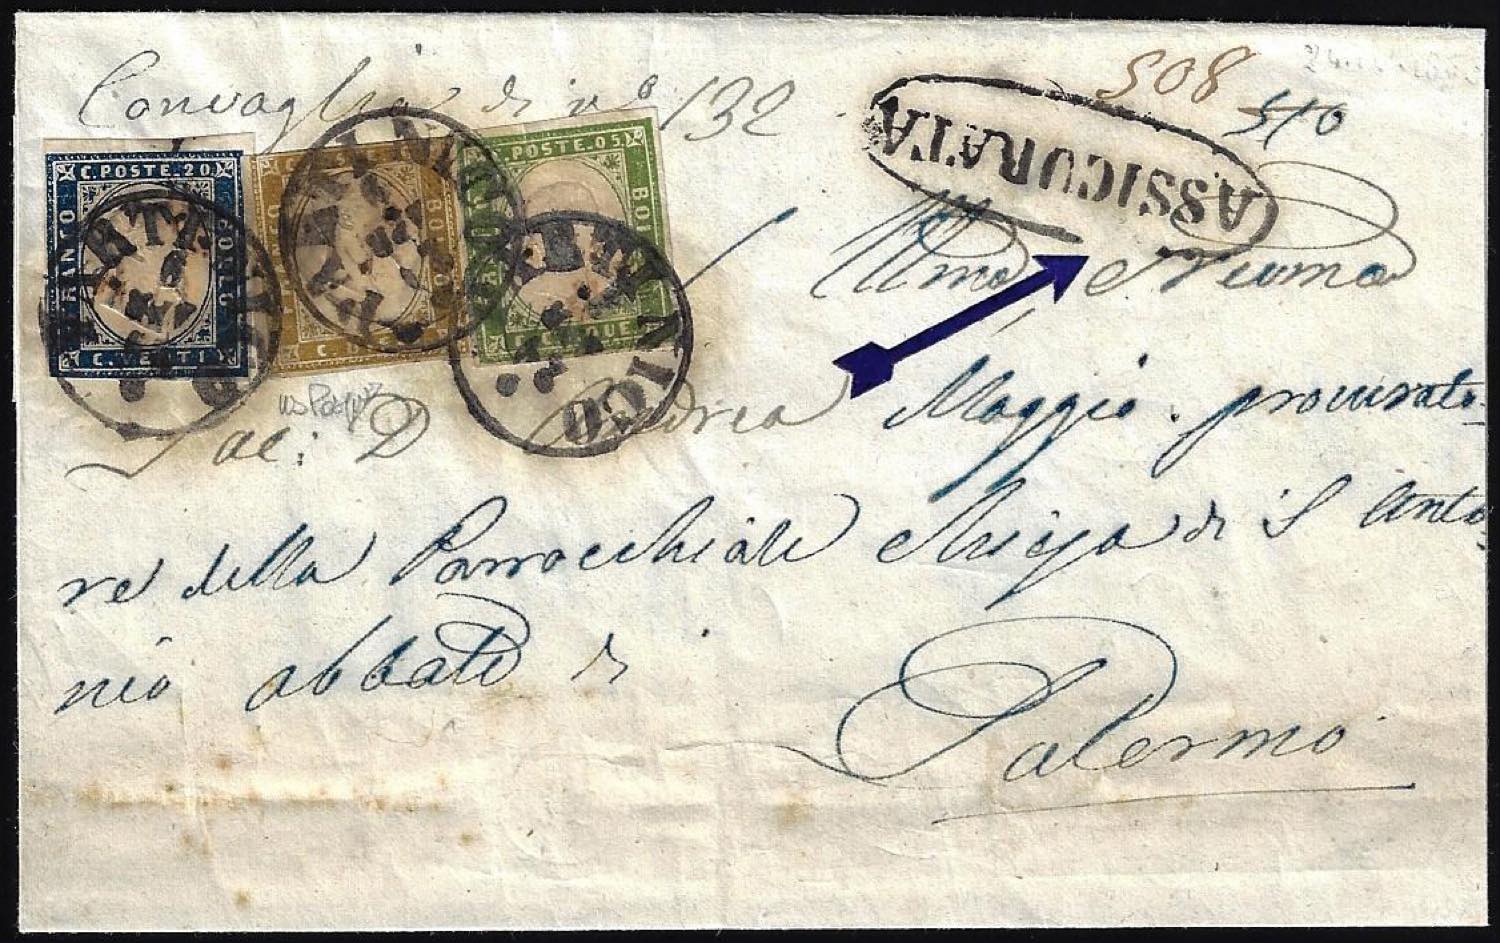 508
Convaglia di n° 132
510
ASSICURATA
C. POSTE. 20
FRANCO
BOLLO
C. VENTI
C. POSTE. 05
BOL
PARTINICO
All'Illmo e Revmo
Sac: D Andrea Maggio procurato=
re della Parrocchiale Chiesa di S Anto=
nio abbate di
Palermo